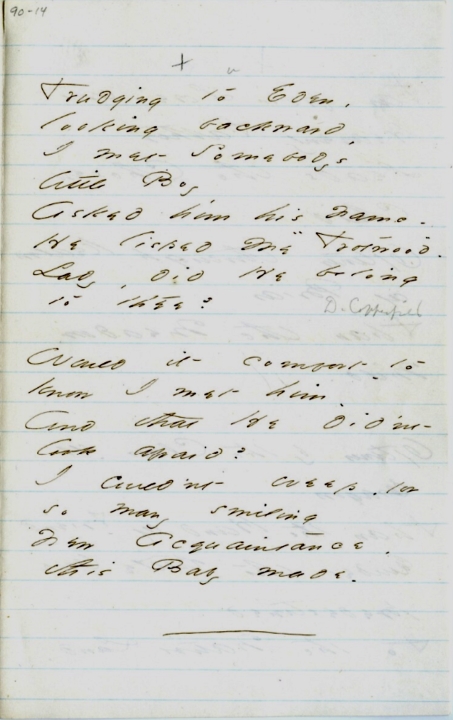 90-14
+
Trudging to Eden,
looking backward,
I met Somebody's
little Boy
Asked him his name -
He lisped me "Trotwood".
Lady, did He belong
to thee?
D. Copperfield
Would it comfort - to
know I met him,
And that He did'nt
look afraid?
I could'nt weep, for
so many smiling
New Acquaintance,
this Baby made.